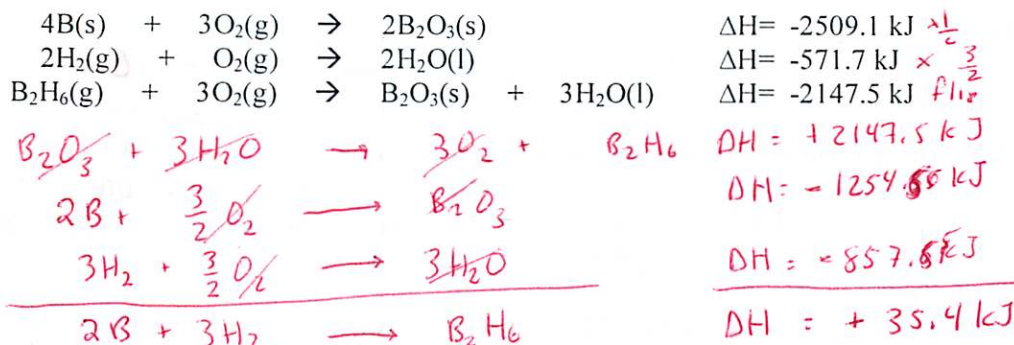 4B(s) + 3O₂(g) → 2B₂O₃(s) ΔH= -2509.1 kJ x½
2H₂(g) + O₂(g) → 2H₂O(l) ΔH= -571.7 kJ x 3/2
B₂H₆(g) + 3O₂(g) → B₂O₃(s) + 3H₂O(l) ΔH= -2147.5 kJ flip
B₂O₃ + 3H₂O → 3O₂ + B₂H₆ DH = +2147.5 kJ
2B + 3/2 O₂ → B₂O₃ DH = -1254.55 kJ
3H₂ + 3/2 O₂ → 3H₂O DH = -857.55 kJ
2B + 3H₂ → B₂H₆ DH = +35.4 kJ